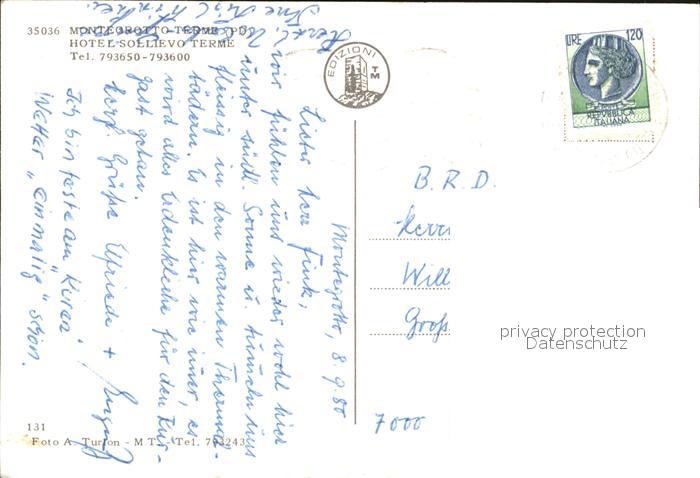 35036 MONTEGROTTO TERME (PD)
HOTEL SOLLIEVO TERME
Tel. 793650 - 793600
EDIZIONI
TM
LIRE 120
REPVBBLICA
ITALIANA
Montegrotto, 8.9.80
Lieber Herr Fink,
wir fühlen uns wieder wohl hier
unter südl. Sonne u. tummeln uns
fleissig in den warmen Thermal-
bädern. Es ist hier wie immer, es
wird alles Erdenkliche für den Kur-
gast getan.
Herzl. Grüße Elfriede +
Ich bin feste am Kuren
Wetter "einmalig" schön.
Herzl.
B.R.D.
Herrn
Will
Groß
7000
privacy protection
Datenschutz
131
Foto A. Turlon - M T. - Tel. 793243